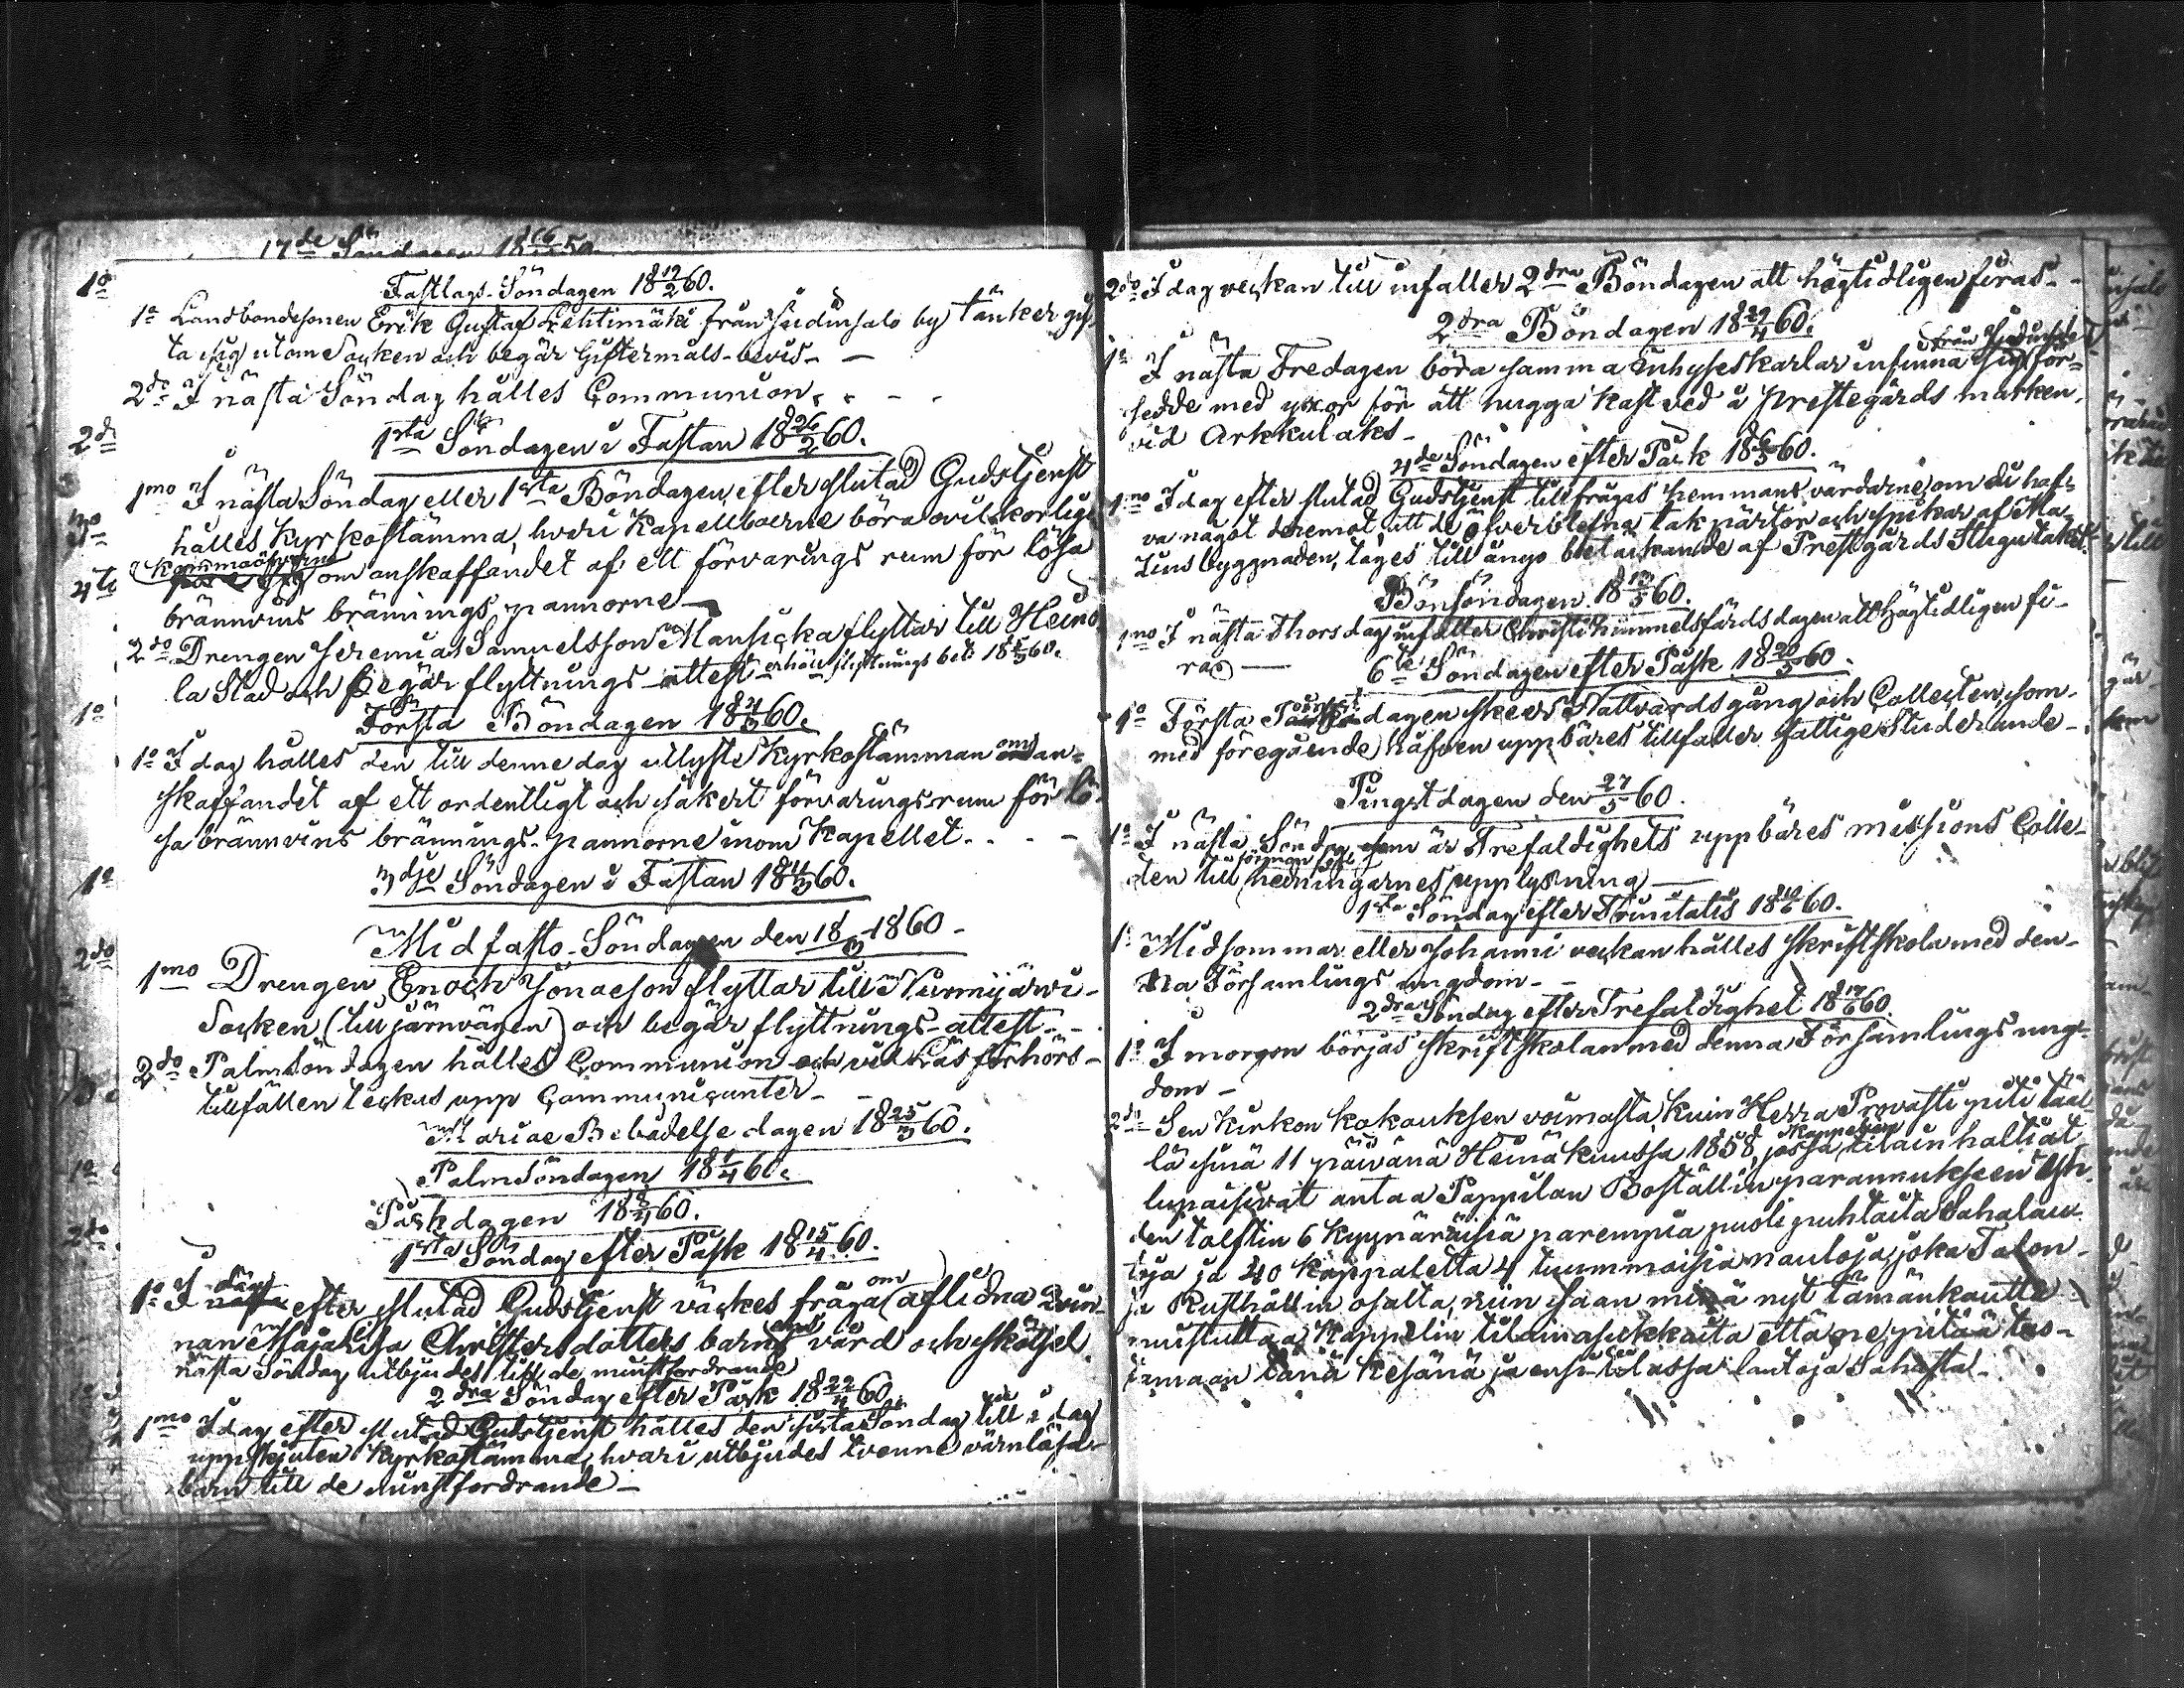 17de Söndagen
Fastlags-Söndagen 18 19/2 60.
1o Landbondesonen Erik Gustaf Lehtimäki från by tänker gif-
ta sig utom Socken och begär Giftermåls-bevis -
2do I nästa Söndag hålles Communion. . - -
1sta Söndagen i Fastan 18 26/2 60.
1mo I nästa Söndag eller 1sta Böndagen, efter slutad Gudstjenst
hålles Kyrkostämma, hvari Kapellboerne böra ovilkorlige
komma öfverens om anskaffandet af ett förvarings rum för lösa
brännvins brännings pannorne -
2do Drengen Jeremias Samuelsson Mansicka flyttar till Heino
la Stad och begär flyttnings-attest - erhöll flyttnings bet:
Första Böndagen 18 4/3 60.
1o I dag hålles den till denne dag utlyste Kyrkostämman om an-
skaffandet af ett ordentligt och säkert förvaringsrum för lö-
sa brännvins brännings-pannorne inom Kapellet. . . -
3dje Söndagen i Fastan 18 11/3 60.
Midfasto-Söndagen den 18/3 1860 -
1mo Drengen Enoch Jonaeson flyttar till Nurmijärvi -
Socken (till järnvägen) och begär flyttnings-attest. -
2do Palmsöndagen hålles Communion och vid Läsförhörs -
tillfällen teckas upp Communicanter -
Mariae Bebådelse dagen 18 25/3 60.
Palmsöndagen 18 1/4 60.
Påskdagen 18 8/4 60.
1sta Söndag efter Påsk 18 15/4 60.
1o I dag efter slutad Gudstjenst väckes fråga om aflidna Qvin-
nan Maja Lisa Christersdotters barns vård och skötsel.
nästa Söndag utbjudes till de minstfordrande
2dra Söndag efter Påsk 18 22/4 60.
1mo I dag efter slutad Gudstjenst hålles den sista Söndag till i dag
uppskjuten Kyrkostämma, hvari utbjudes tvenne värnlösa
barn till de minstfordrande -
2do I dag veckan till infaller 2dra Böndagen att högtidligen firas. -
2dra Böndagen 18 29/4 60.
1o I nästa Fredagen böra samma inhyseskarlar från infinna sig för-
sedde med yxor för att hugga kastved å Prestegårds marken
vid Arkkulaks -
4de Söndagen efter Påsk 18 6/5 60.
1mo I dag efter slutad Gudstjenst tillfrågas hemmans värdarne, om de haf-
va något deremot, att de öfverblefna takpärtor och spikar af Ma-
tins byggnaden, tages till ängo betäckande af Prestgårds Stugutaket
Bönsöndagen 18 13/5 60.
1mo I nästa Thorsdag infaller Christi himmelsfärdsdagen att Högtidligen fi-
ras -
6te Söndagen efter Påsk 18 20/5 60.
1o Första Pingst dagen sker Nattvardsgång och Collecten, som
med föregående håfven uppbäres tillfaller fattige Studerande -
Pingstdagen den 27/5 60.
1o I nästa Söndag som är Trefaldighets uppbäres missions Colle-
den till hedningarnes upplysning -
1sta Söndag efter Trinitatis 18 10/6 60.
1o Midsommar eller Johanni veckan hålles skriftskola med den-
na Församlings ungdom - -
2dra Söndag efter Trefaldighet 18 17/6 60.
1o I morgon börjas skriftskolan med denna Församlings ung-
dom -
2do Sen kirkon kokouksen voimasta, kuin Herra Provasti piti tääl-
lä sinä 11 päivänä Heinäkuussa 1858, jossa Kappelin tilain haltiat
lupaisivat antaa Pappilan Boställin parannukseen yh-
den tolftin 6 kyynäräisiä parempia puolipuhtaita Sahalau-
toja ja 40 kappaletta 4 tuummaisia nauloja, joka Talon-
ja Rusthållin osalta, niin saan minä nyt tämänkautta
muistuttaa Kappelin tilainasukkaita että ne pitää tuo-
mmaan tänä kesänä ja ensi- lautoja Sahasta -